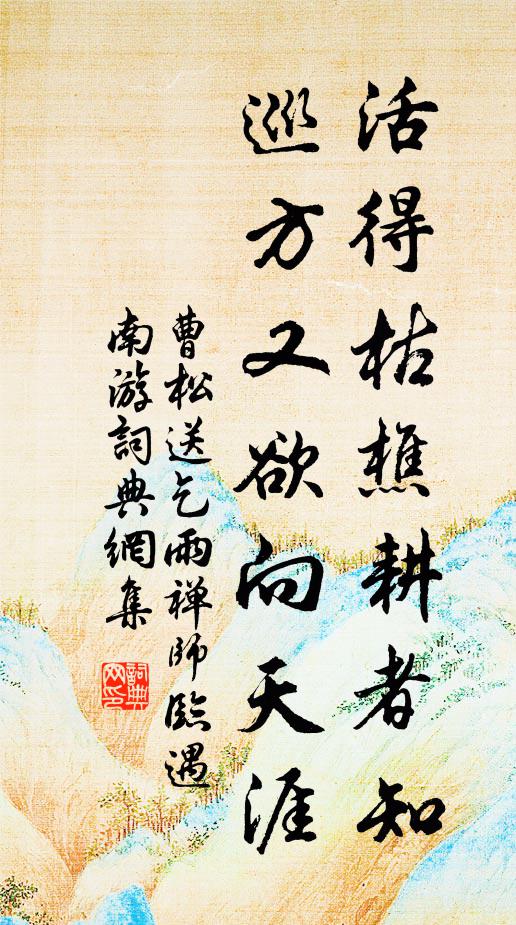 活得枯樵耕者知
巡方又欲向天涯
曹松送乞雨禅师臨遇
南游詞典網集
詞典网印